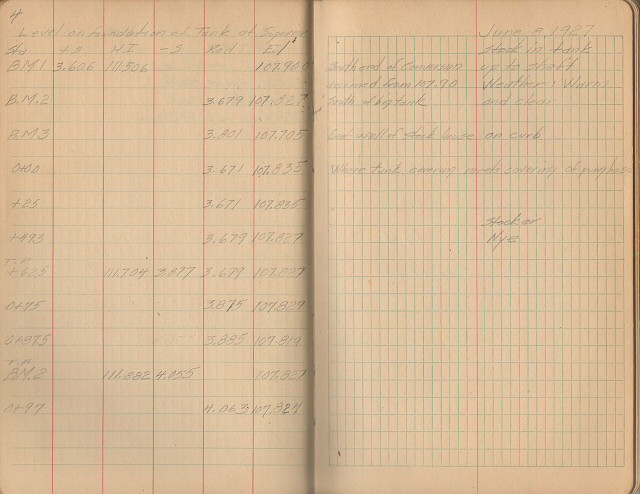 4
Level on foundation of Tank at
Sta +S H.I. -S Rod El
B.M.1 3.606 111.506 107.900
B.M.2 3.679 107.827
B.M.3 3.801 107.705
0+00 3.671 107.835
+25 3.671 107.835
+493 3.679 107.827
T.P.
+625 111.704 3.877 3.679 107.827
0+75 3.875 107.829
0+875 3.885 107.819
T.P.
B.M.2 111.882 4.055 107.827
0+97 4.063
June 8 1927
Stock in tank
South end of up to shelf
from 107.90 Weather: Warm
South of big tank and clear
wall of stock house on curb
Where tank covering meets covering of
Stocker
Nye